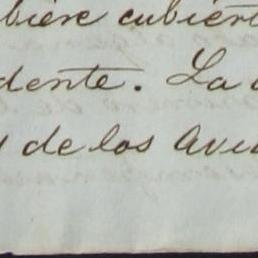 biere cubiert
dente. La
y de los ave